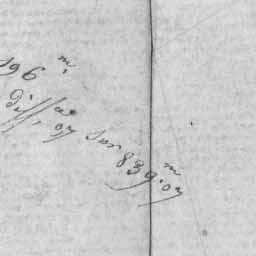 196 m.
diff.ce 07 sur 839.07 m